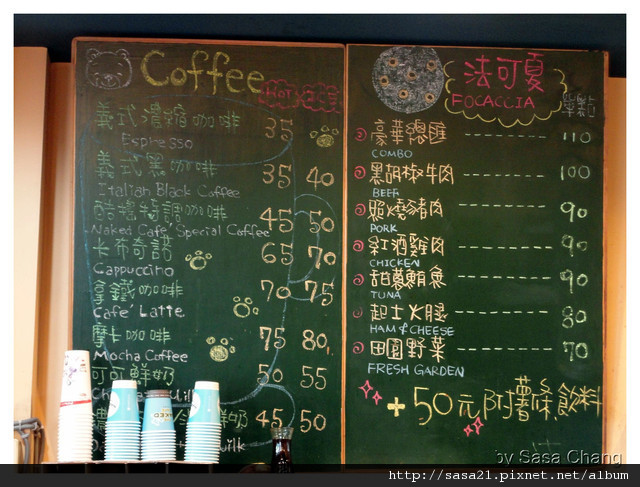 Coffee
HOT
義式濃縮咖啡 35
Espresso
義式黑咖啡 35 40
Italian Black Coffee
酷煺特調咖啡 45 50
Naked Cafe' Special Coffee
卡布奇諾 65 70
Cappuccino
拿鐵咖啡 70 75
Cafe' Latte
摩卡咖啡 75 80
Mocha Coffee
可可鮮奶 50 55
鮮奶 45 50
法可夏
FOCACCIA
單點
豪華總匯 110
COMBO
黑胡椒牛肉 100
BEEF
照燒豬肉 90
PORK
紅酒雞肉 90
CHICKEN
甜蔥鮪魚 90
TUNA
起士火腿 80
HAM & CHEESE
田園野菜 70
FRESH GARDEN
+50元附薯條飲料
by Sasa Chang
http://sasa21.pixnet.net/album